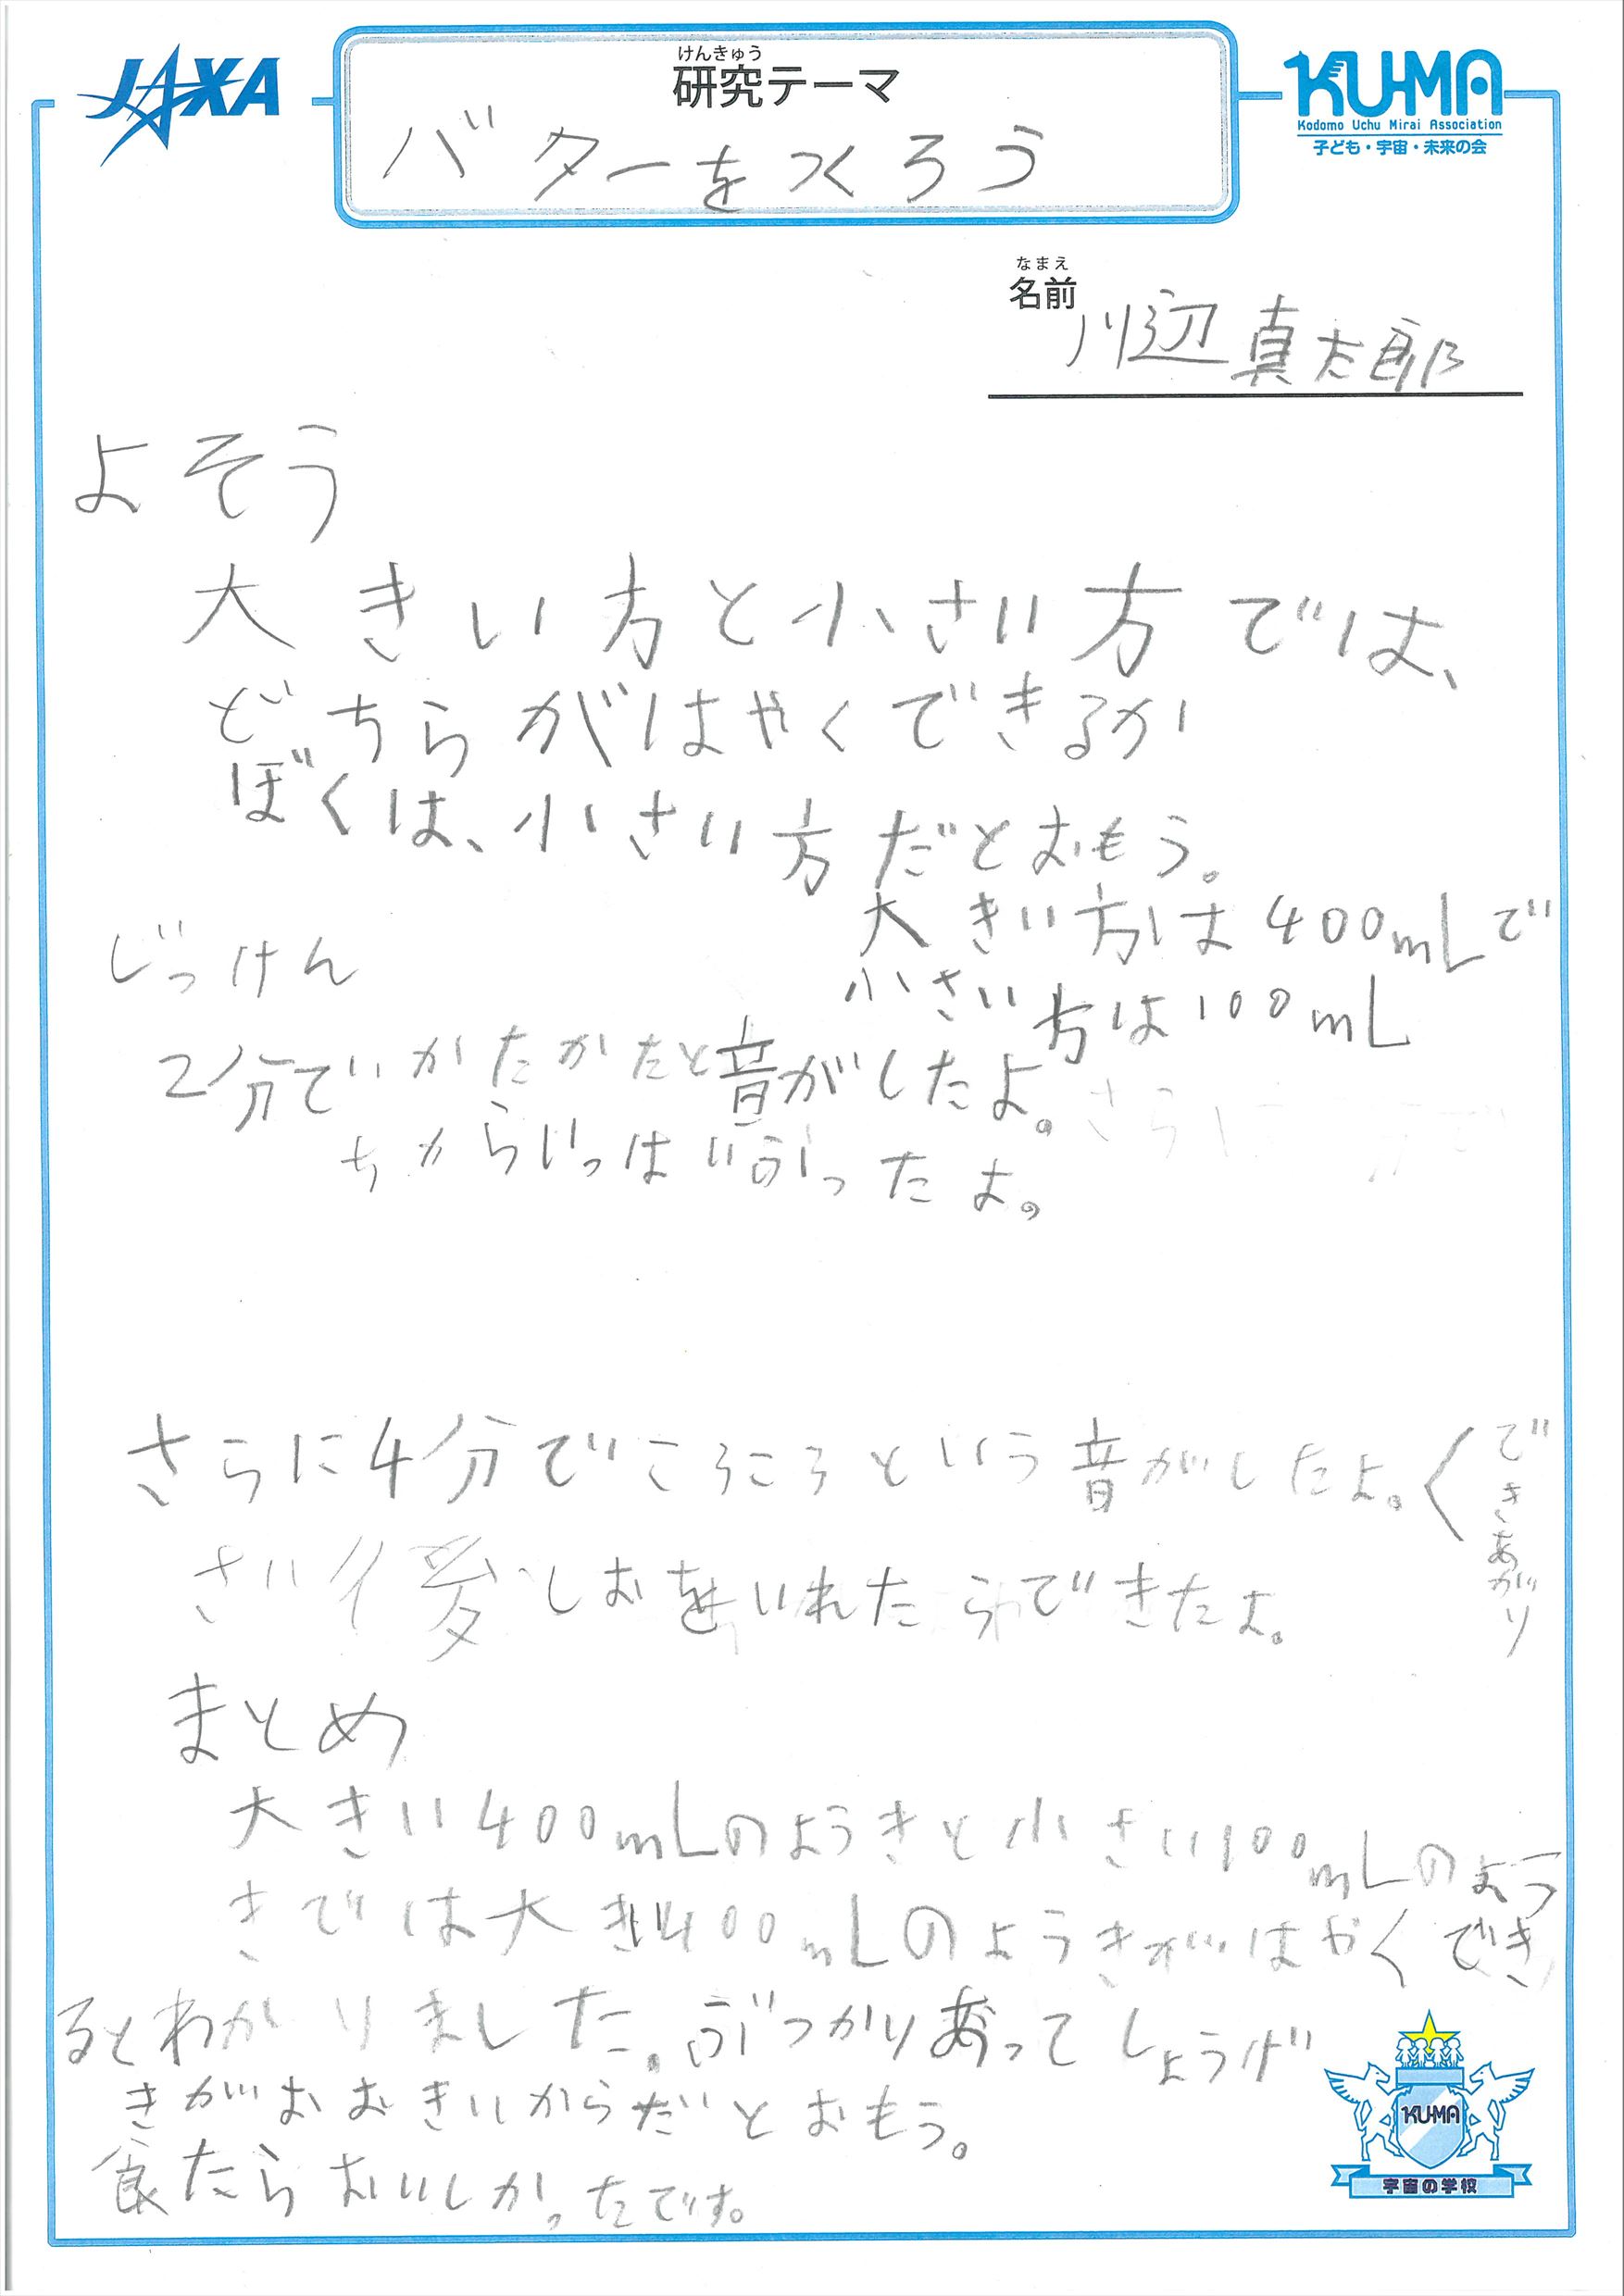 JAXA
けんきゅう
研究テーマ
バターをつくろう
KU-MA
Kodomo Uchu Mirai Association
子ども・宇宙・未来の会
なまえ
名前
川辺真太郎
よそう
大きい方と小さい方では、
どちらがはやくできるか
ぼくは、小さい方だとおもう。
大きい方は400mLで
小さい方は100mL
じっけん
2分でかたかたと音がしたよ。
ちからいっはいふったよ。
さらに4分でころころという音がしたよ。
できあがり
さい後しおをいれたらできたよ。
まとめ
大きい400mLのようきと小さい100mLのよう
きでは大きい400mLのようきがはやくでき
るとわかりました。ぶつかりあってしょうげ
きがおおきいからだとおもう。
食たらおいしかったです。
KU-MA
宇宙の学校